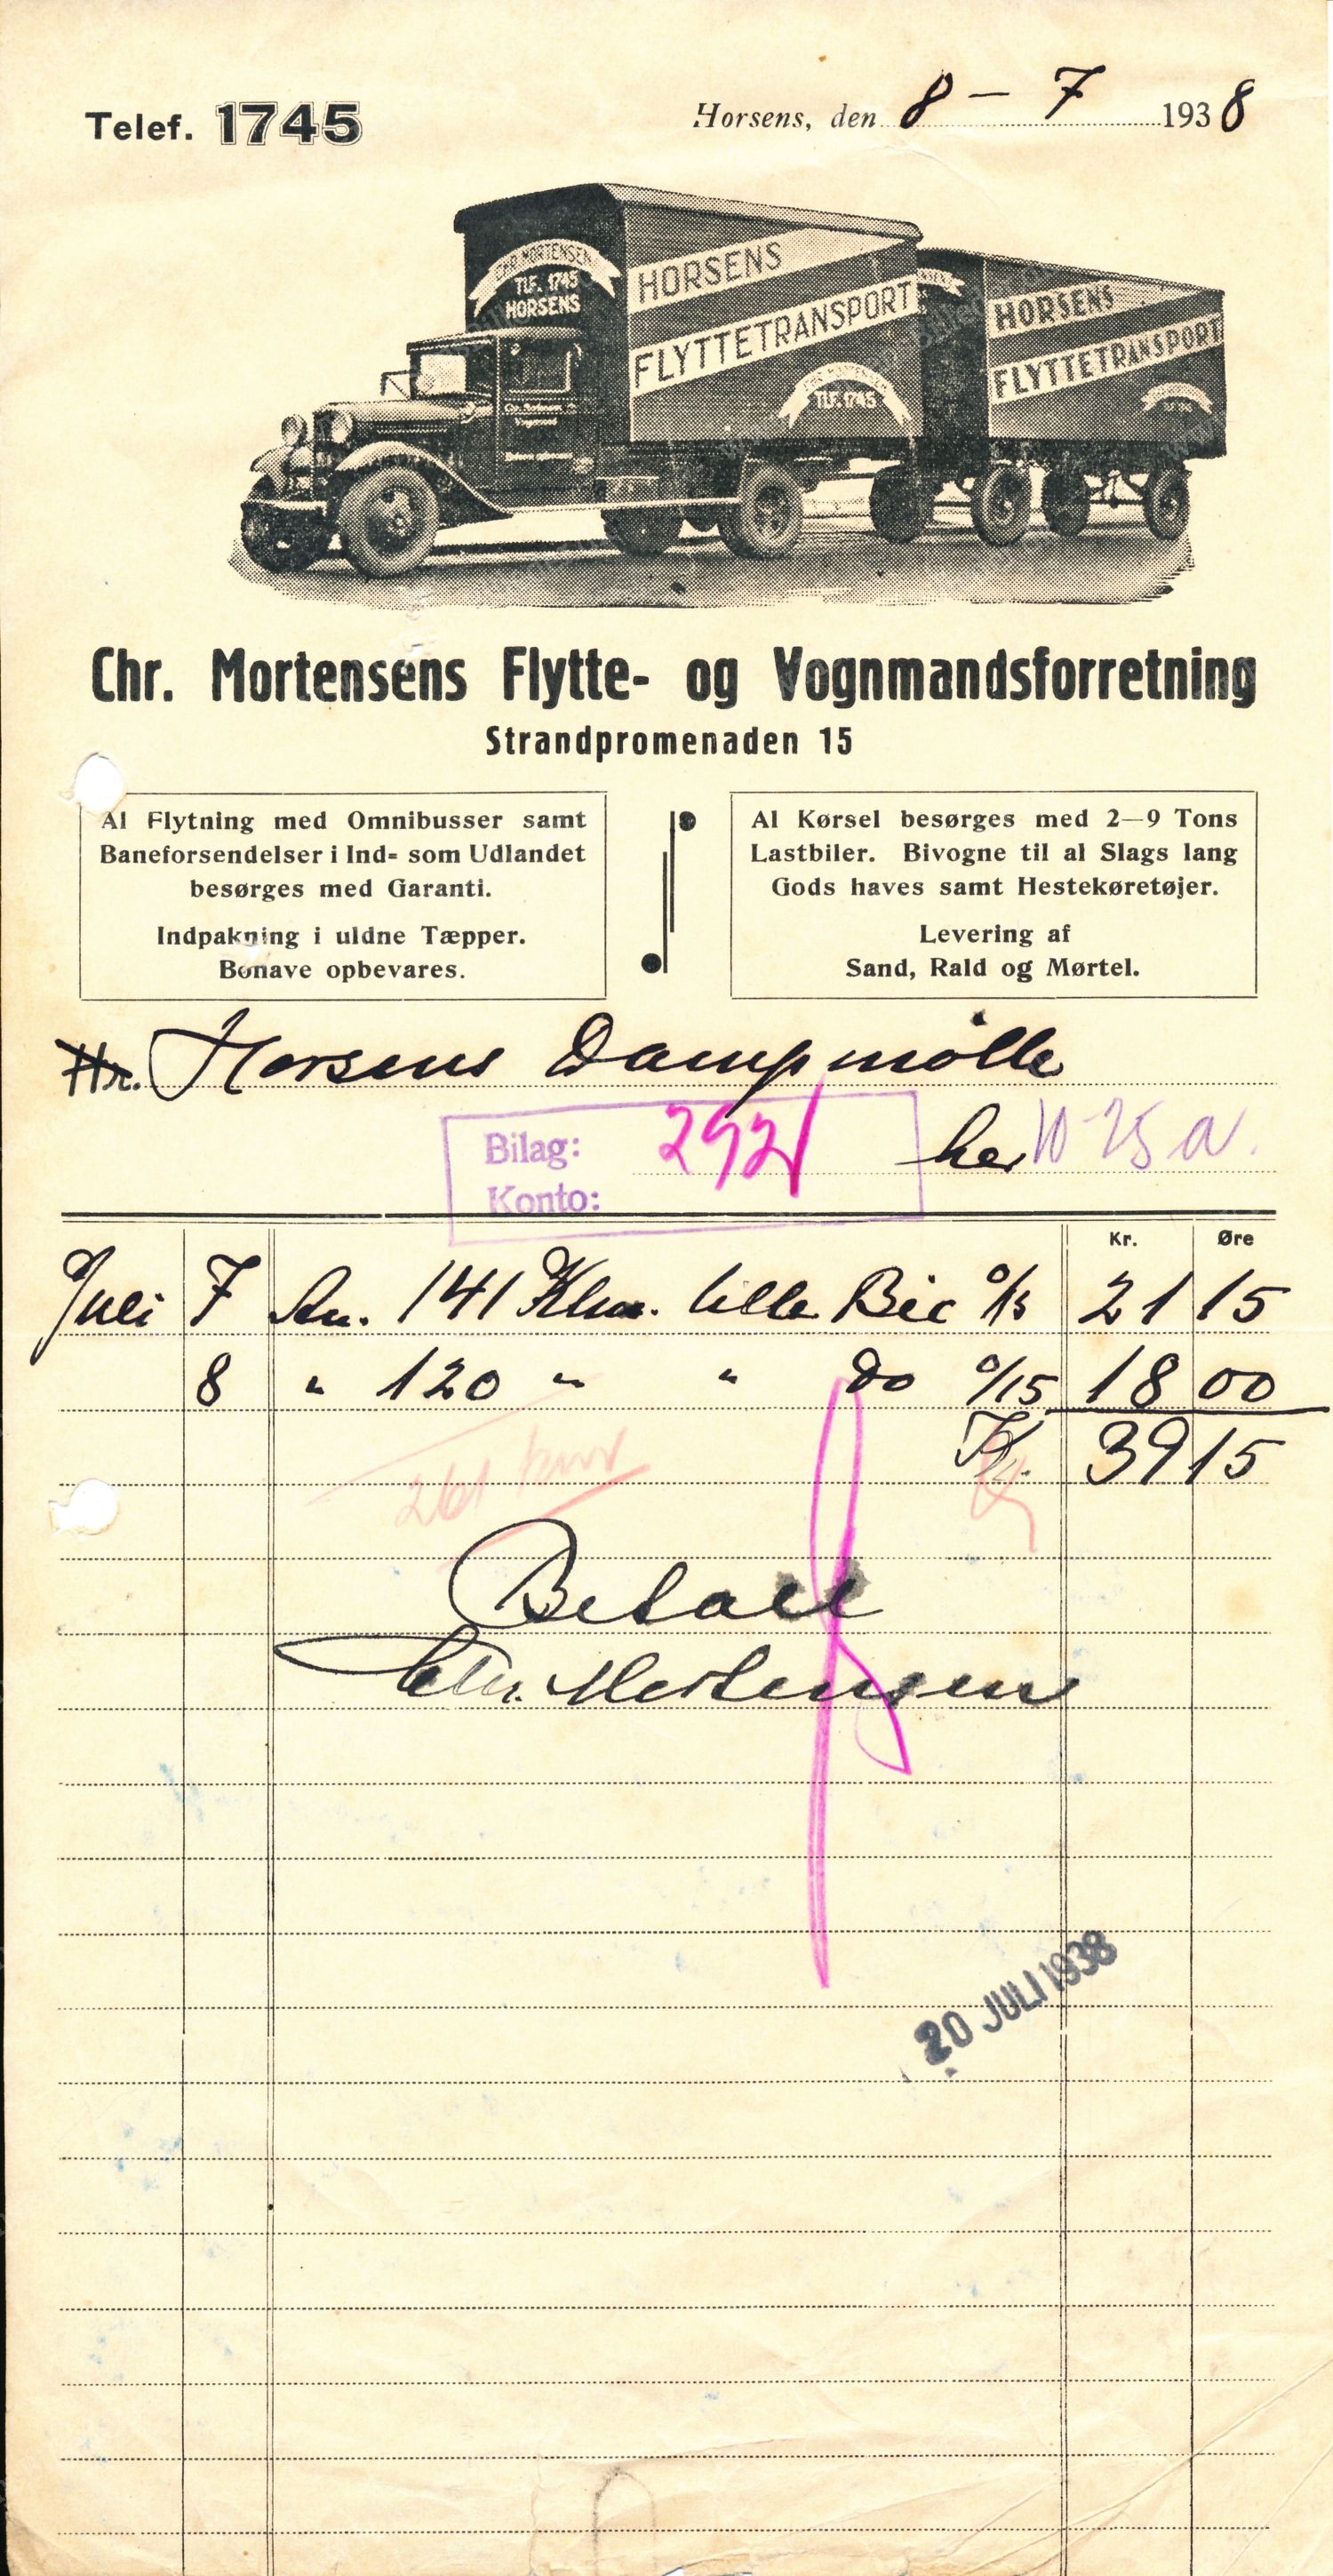 Telef. 1745
Horsens, den 8 - 7 1938
CHR. MORTENSEN
TLF. 1745
HORSENS
HORSENS
FLYTTETRANSPORT
CHR. MORTENSEN
TLF. 1745
HORSENS
FLYTTETRANSPORT
Chr. Mortensens Flytte- og Vognmandsforretning
Strandpromenaden 15
Al Flytning med Omnibusser samt
Baneforsendelser i Ind- som Udlandet
besørges med Garanti.
Indpakning i uldne Tæpper.
Bohave opbevares.
Al Kørsel besørges med 2—9 Tons
Lastbiler. Bivogne til al Slags lang
Gods haves samt Hestekøretøjer.
Levering af
Sand, Rald og Mørtel.
Hr. Horsens Dampmølle
her
Bilag: 292
Konto:
Kr. Øre
Juli 7 An. 141 Klm. lille Bil 0/15 21 15
8 " 120 " " Do 0/15 18 00
Kr. 39 15
261
Betalt
Chr. Mortensen
20 JULI 1938